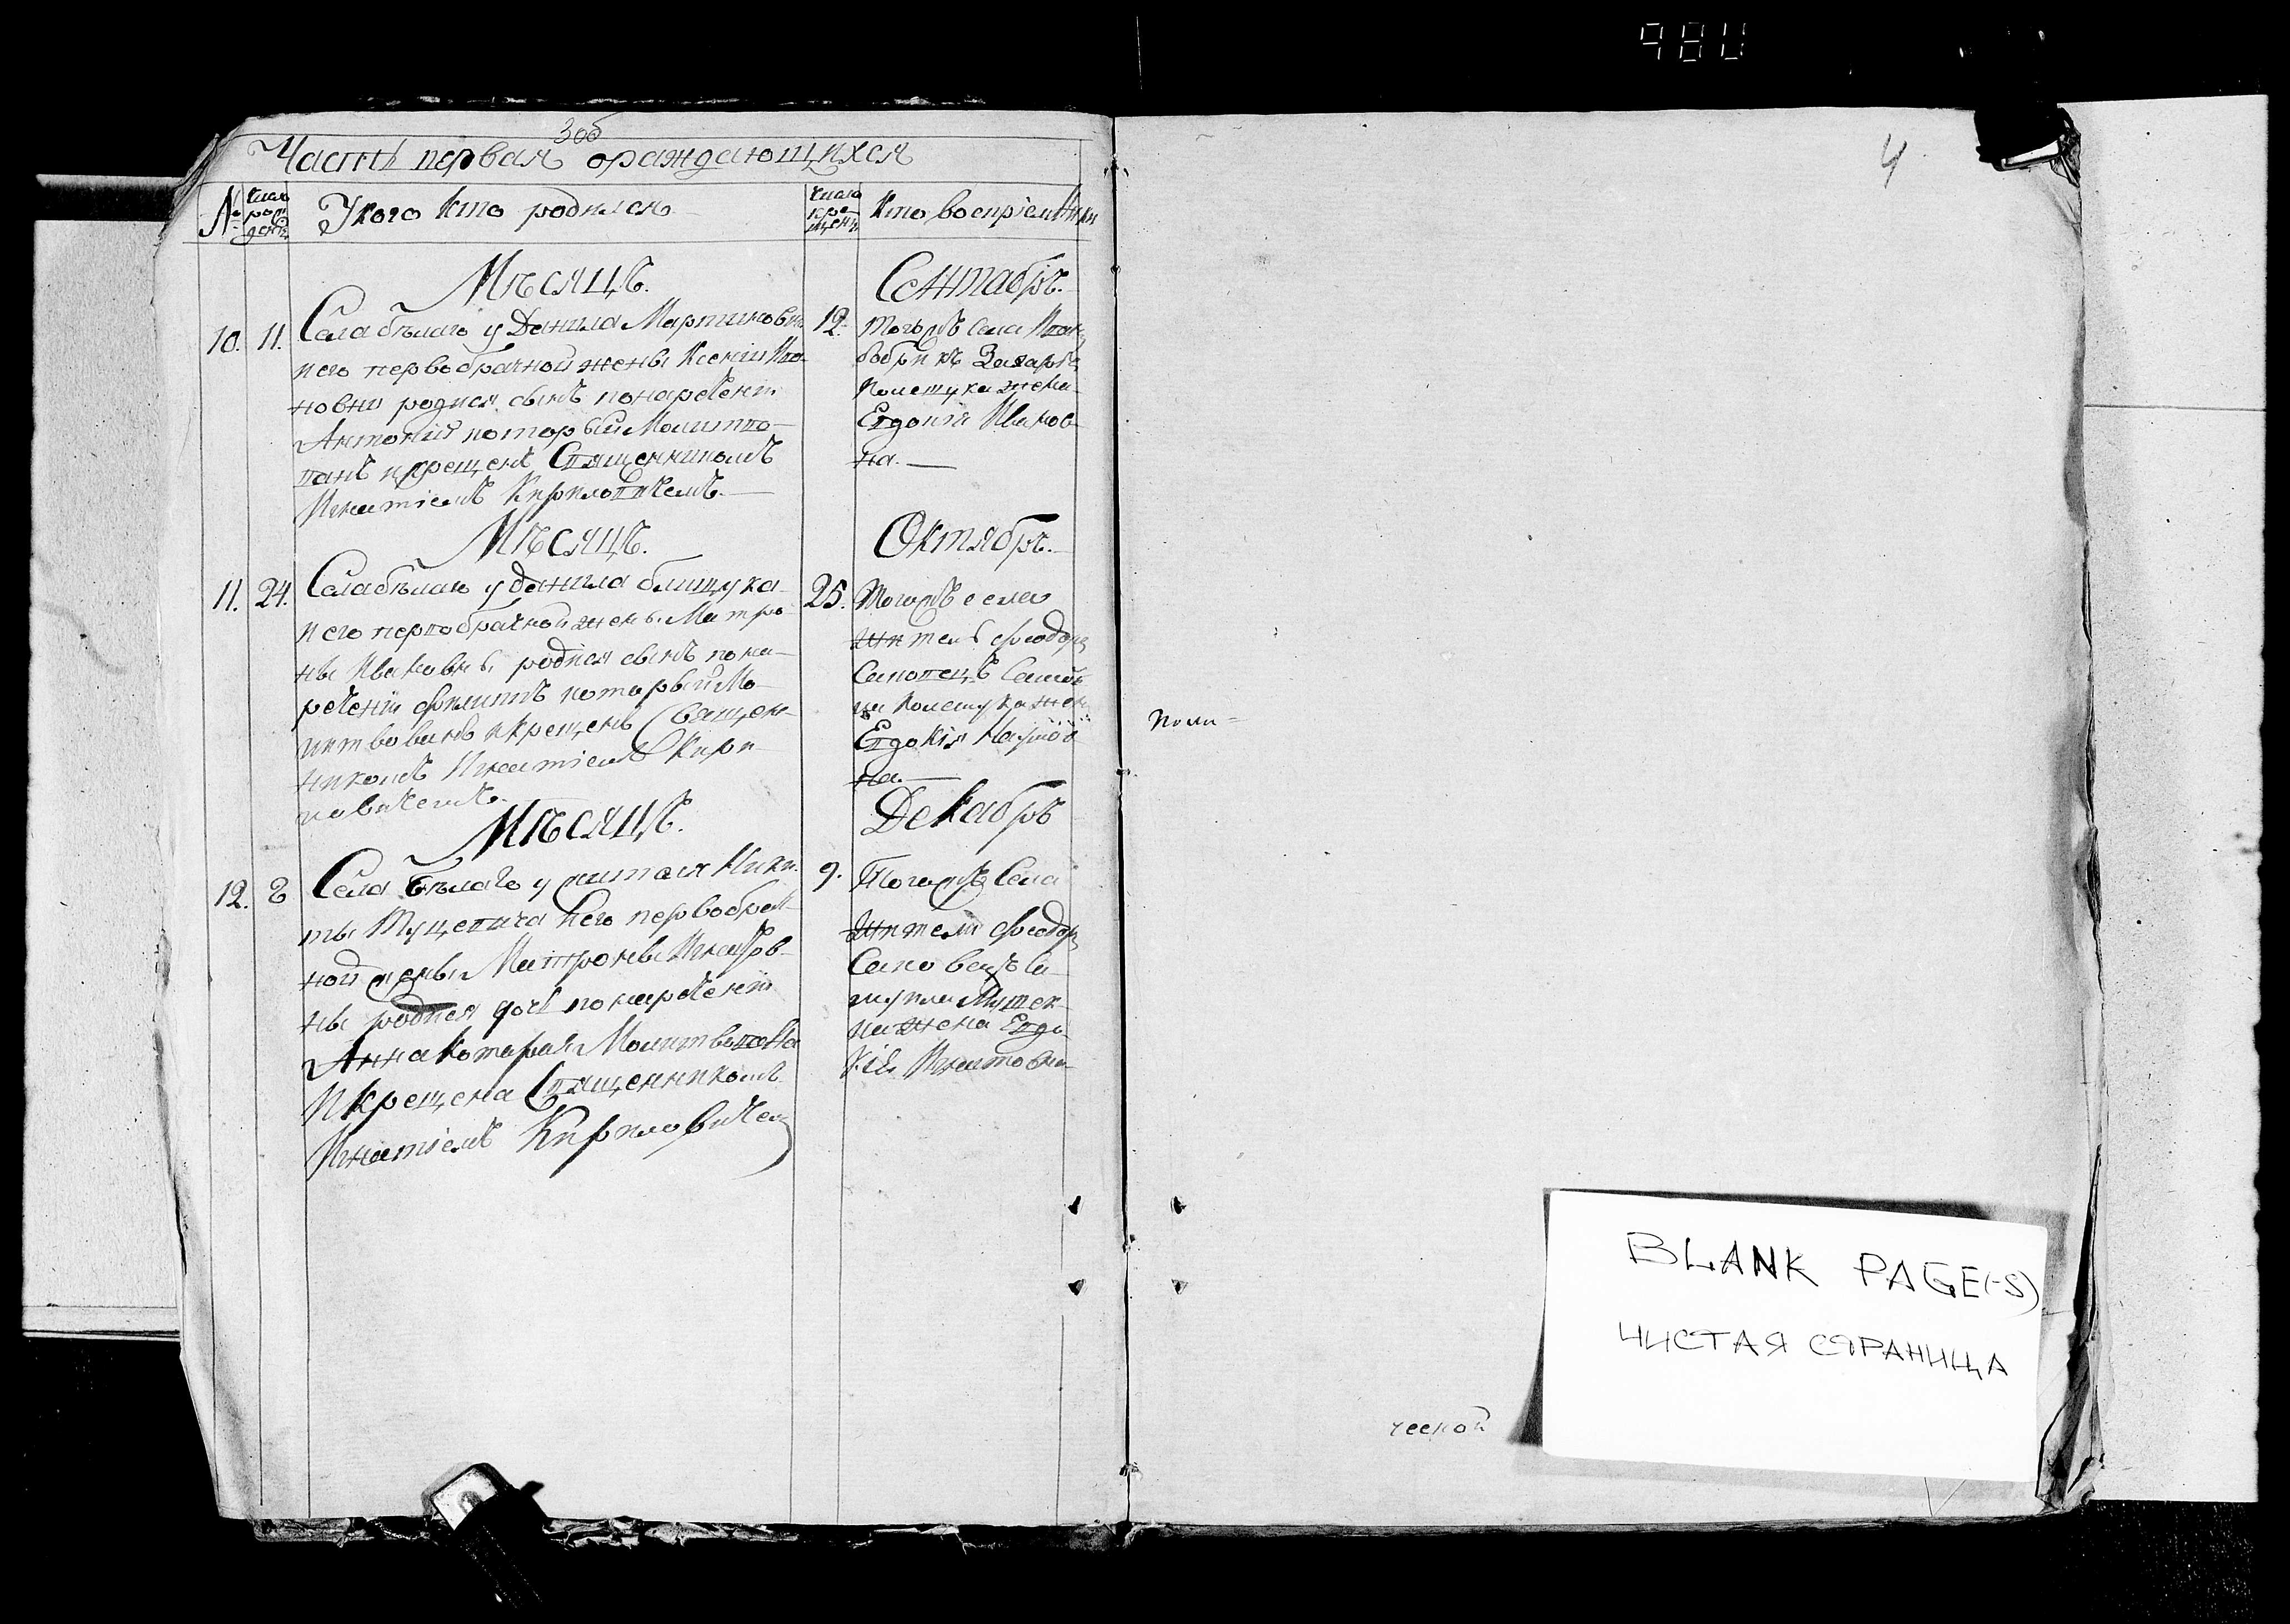 980
3об
Часть первая ораждающихся
4
№ Число рожденія
У кого кто родился
Число крещенія
Кто воспріемники
Мѣсяцъ.
Сентабръ.
10. 11. Села бѣлаго у Данила Мартинов
его первобрачной жены Ксеніи
новни родися сынъ понаречени
Антоній которьій Молитво
ванъ и крещенъ Священникомъ
Игнатіемъ Кириловичемъ.
12. Тогожъ Села
Захарія
Полещука жена
Евдокія Иванов
на.
Мѣсяцъ.
Октябръ.
11. 24. Села бѣлаго у данила блищука
и его первобрачной жены Матро
ны Ивановны родися сынъ пона
речении филиппъ которьій Мо
литвованъ и крещенъ Священ
никомъ Игнатіемъ Кири
ловичемъ.
25. Тогожъ села
житель феодоръ
жен
Евдокія
на.
Мѣсяцъ.
Декабръ
12. 8 Села Бѣлаго у жителя Ники
ты и его первобрач
ной жены Матроны
ны родися дочь по нареченіи
Анна которая Молитвована
и крещена Священникомъ
Игнатіемъ Кириловичем
9. Тогожъ Села
житель феодоръ
жена Евдо
кія Игнатовна
поли=
ческой
BLANK PAGE(-S)
ЧИСТАЯ СТРАНИЦА